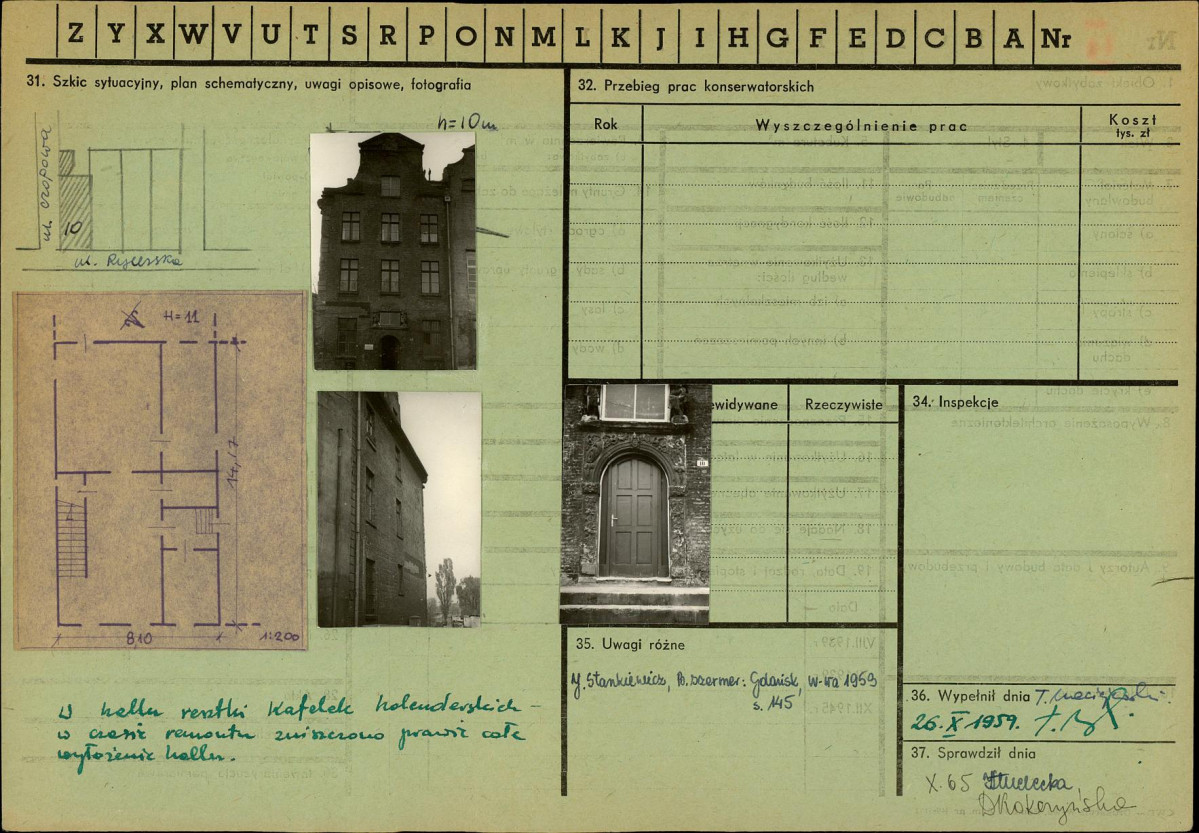 Z Y X W V U T S R P O N M L K J I H G F E D C B A Nr
31. Szkic sytuacyjny, plan schematyczny, uwagi opisowe, fotografia
h=10m
ul. Czopowa
10
ul. Rycerska
H=11
14,17
810
1:200
W hallu resztki kafelek holenderskich -
w czasie remontu zniszczono prawie całe
wyłożenie hallu.
32. Przebieg prac konserwatorskich
Rok
Wyszczególnienie prac
Koszt
tys. zł
ewidywane
Rzeczywiste
34. Inspekcje
35. Uwagi różne
J. Stankiewicz, B. Szermer: Gdańsk, W-wa 1959
s. 145
36. Wypełnił dnia
26. X 1959.
37. Sprawdził dnia
X. 65